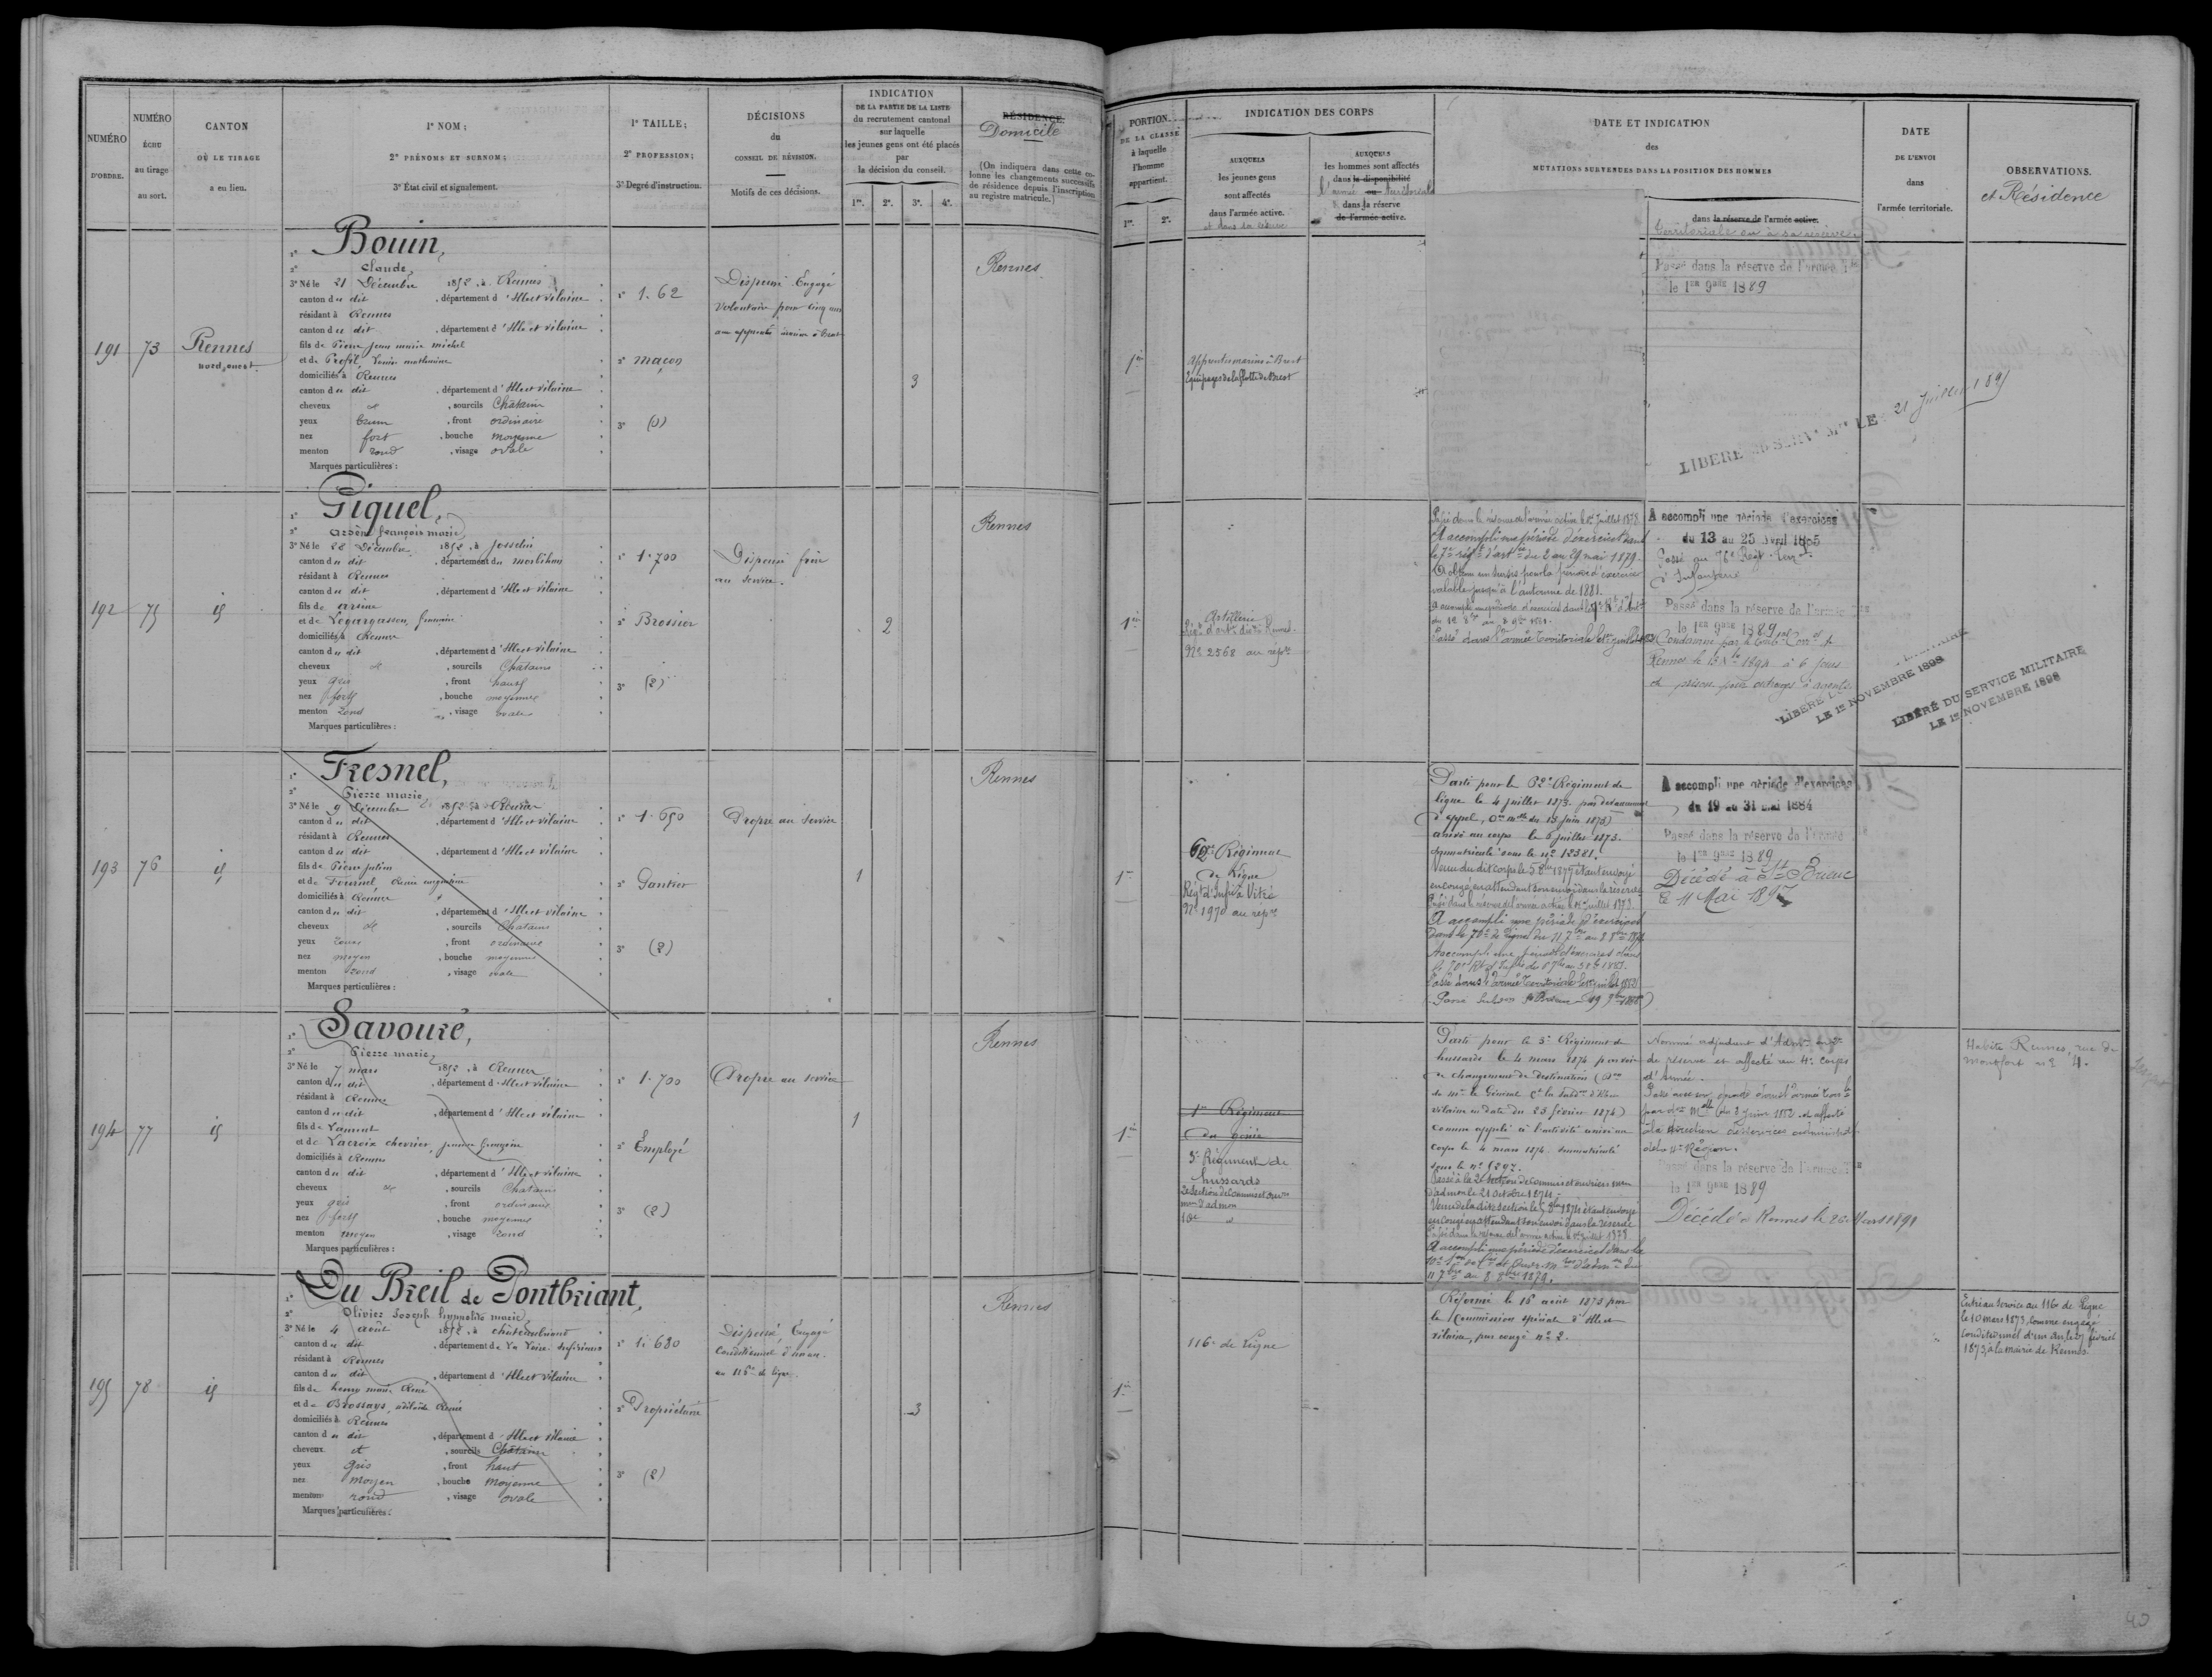 NUMÉRO
D'ORDRE.
NUMÉRO
ÉCHU
au tirage
au sort.
CANTON
OÙ LE TIRAGE
a eu lieu.
1° NOM;
2° PRÉNOMS ET SURNOM;
3° État civil et signalement.
1° TAILLE;
2° PROFESSION;
3° Degré d'instruction.
DÉCISIONS
du
CONSEIL DE RÉVISION.
Motifs de ces décisions.
INDICATION
DE LA PARTIE DE LA LISTE
du recrutement cantonal
sur laquelle
les jeunes gens ont été placés
par
la décision du conseil.
1re. 2e. 3e. 4e.
RÉSIDENCE
Domicile
(On indiquera dans cette co-
lonne les changements successifs
de résidence depuis l'inscription
au registre matricule.)
PORTION
DE LA CLASSE
à laquelle
l'homme
appartient.
1re. 2e.
INDICATION DES CORPS
AUXQUELS
les jeunes gens
sont affectés
dans l'armée active.
et dans la réserve
AUXQUELS
les hommes sont affectés
dans la disponibilité
l'armée ou territoriale
dans la réserve
de l'armée active.
DATE ET INDICATION
des
MUTATIONS SURVENUES DANS LA POSITION DES HOMMES
dans la réserve de l'armée active.
territoriale ou à sa réserve
DATE
DE L'ENVOI
dans
l'armée territoriale.
OBSERVATIONS.
et Résidence
191
73
Rennes
nord, ouest.
1° Bouin,
2° Claude,
3° Né le 21 Décembre 1852, à Rennes
canton du dit, département d'Ille et vilaine
résidant à Rennes
canton du dit, département d'Ille et vilaine
fils de Pierre jean marie michel
et de Profil, Louise mathurine
domiciliés à Rennes
canton du dit, département d'Ille et vilaine
cheveux et, sourcils Châtain
yeux brun, front ordinaire
nez fort, bouche moyenne
menton rond, visage ovale
Marques particulières :
1° 1.62
2° maçon
3° (0)
Dispensé Engagé
volontaire pour cinq ans
aux apprentis marins à Brest
3
Rennes
1re
Apprentis marins à Brest
Equipages de la flotte de Brest
Passé dans la réserve de l'armée Tle
le 1er 9bre 1889
LIBÉRÉ DU SERVce Mre LE 21 Juillet 1895
192
75
id
1° Giquel,
2° arsène françois marie,
3° Né le 28 Décembre 1852, à Josselin
canton du dit, département du morbihan
résidant à Rennes
canton du dit, département d'Ille et vilaine
fils de arsène
et de Legargasson, françoise
domiciliés à Rennes
canton du dit, département d'Ille et vilaine
cheveux et, sourcils Chatains
yeux gris, front haut
nez fort, bouche moyenne
menton rond, visage ovale
Marques particulières :
1° 1.700
2° Brossier
3° (2)
Dispensé frère
au service.
2
Rennes
1re
Artillerie
Régt d'artie de Rennes.
No 2568 au répre
Passé dans la réserve de l'armée active le 1er Juillet 1878.
A accompli une période d'exercices dans
le 7e régt d'artie du 2 au 29 mai 1879.
A obtenu un sursis pour la période d'exercices
valable jusqu'à l'automne de 1881.
Passé dans l'armée territoriale le 1er juillet
A accompli une période d'exercices
du 13 au 25 Avril 1885
Passé au 76e Régt Terr
d'Infanterie
Passé dans la réserve de l'armée Tle
le 1er 9bre 1889
Condamné par le trib. Corr. de
Rennes le 15 1894 à 6 jours
de prison pour outrages à agents
LIBÉRÉ
LE 1er NOVEMBRE 1898
LIBÉRÉ DU SERVICE MILITAIRE
LE 1er NOVEMBRE 1898
193
76
id
1° Fresnel,
2° Pierre marie,
3° Né le 9 Décembre 1852, à Rennes
canton du dit, département d'Ille et vilaine
résidant à Rennes
canton du dit, département d'Ille et vilaine
fils de Pierre julien
et de Fournel, Renée
domiciliés à Rennes
canton du dit, département d'Ille et vilaine
cheveux et, sourcils Chatains
yeux roux, front ordinaire
nez moyen, bouche moyenne
menton rond, visage ovale
Marques particulières :
1° 1.650
2° Gantier
3° (2)
Propre au service
1
Rennes
1re
62e Régiment
de Ligne
Régt d'Infie à Vitré
No 1970 au répre
Parti pour le 62e Régiment de
ligne le 4 juillet 1873. par devancement
d'appel,
arrivé au corps le 6 juillet 1873.
immatriculé sous le no 12381.
Passé dans la réserve de l'armée active le 1er juillet 1878.
A accompli une période d'exercices
dans le 70e de ligne du 11 7bre au 8 8bre 1879
A accompli une période d'exercices dans
Passé dans l'armée Territoriale le 1er juillet 1882
A accompli une période d'exercices
du 19 au 31 mai 1884
Passé dans la réserve de l'armée
le 1er 9bre 1889
Décédé à St Brieuc
le 11 Mai 1897
194
77
id
1° Savouré,
2° Pierre marie,
3° Né le 7 mars 1852, à Rennes
canton du dit, département d'Ille et vilaine
résidant à Rennes
canton du dit, département d'Ille et vilaine
fils de Laurent
et de Lacroix chevrier, jeanne françoise
domiciliés à Rennes
canton du dit, département d'Ille et vilaine
cheveux et, sourcils Chatains
yeux gris, front ordinaire
nez fort, bouche moyenne
menton moyen, visage rond
Marques particulières :
1° 1.700
2° Employé
3° (2)
Propre au service
1
Rennes
1re
1er Régiment
du génie
3e Régiment de
hussards
2e Section de Commis et ouvrs
mres d'admon
10e d
Parti pour le 3e Régiment de
hussards le 4 mars 1874 par voie
de changement de destination (Dre
de Mr le Général Ct la Subdon d'Ille et
vilaine en date du 23 février 1874)
comme appelé à l'activité arrivé au
corps le 4 mars 1874 immatriculé
sous le no 1297.
Passé à la 2e Section de Commis et ouvriers mres
d'admon le 21 octobre 1874.
en congé en attendant son envoi dans la réserve
Passé dans la réserve de l'armée active le 1er juillet 1878
A accompli une période d'exercices dans la
11 7bre au 8 8bre 1879.
Nommé adjudant d'Admon
de réserve et affecté au 4e corps
d'Armée.
à la direction des services administratifs
de la 4e Région.
Passé dans la réserve de l'armée Tle
le 1er 9bre 1889
Décédé à Rennes le 26 Mars 1891
Habite Rennes, rue de
montfort no 4.
195
78
id
1° Du Breil de Pontbriant,
2° Olivier Joseph hippolite marie,
3° Né le 4 août 1852, à chateaubriant
canton du dit, département de La Loire Inférieure
résidant à Rennes
canton du dit, département d'Ille et vilaine
fils de henry marie René
et de Brossays, adélaïde Renée
domiciliés à Rennes
canton du dit, département d'Ille et Vilaine
cheveux et, sourcils Châtains
yeux gris, front haut
nez moyen, bouche moyenne
menton rond, visage ovale
Marques particulières :
1° 1.680
2° Propriétaire
3° (2)
Dispensé Engagé
Conditionnel d'un an.
au 116e de ligne.
3
Rennes
1re
116e de Ligne
Réformé le 16 août 1873 par
la Commission spéciale d'Ille et
vilaine, par congé no 2.
Entré au service au 116e de Ligne
le 10 mars 1873, Comme engagé
conditionnel d'un an, le 27 février
1873, à la mairie de Rennes.
40